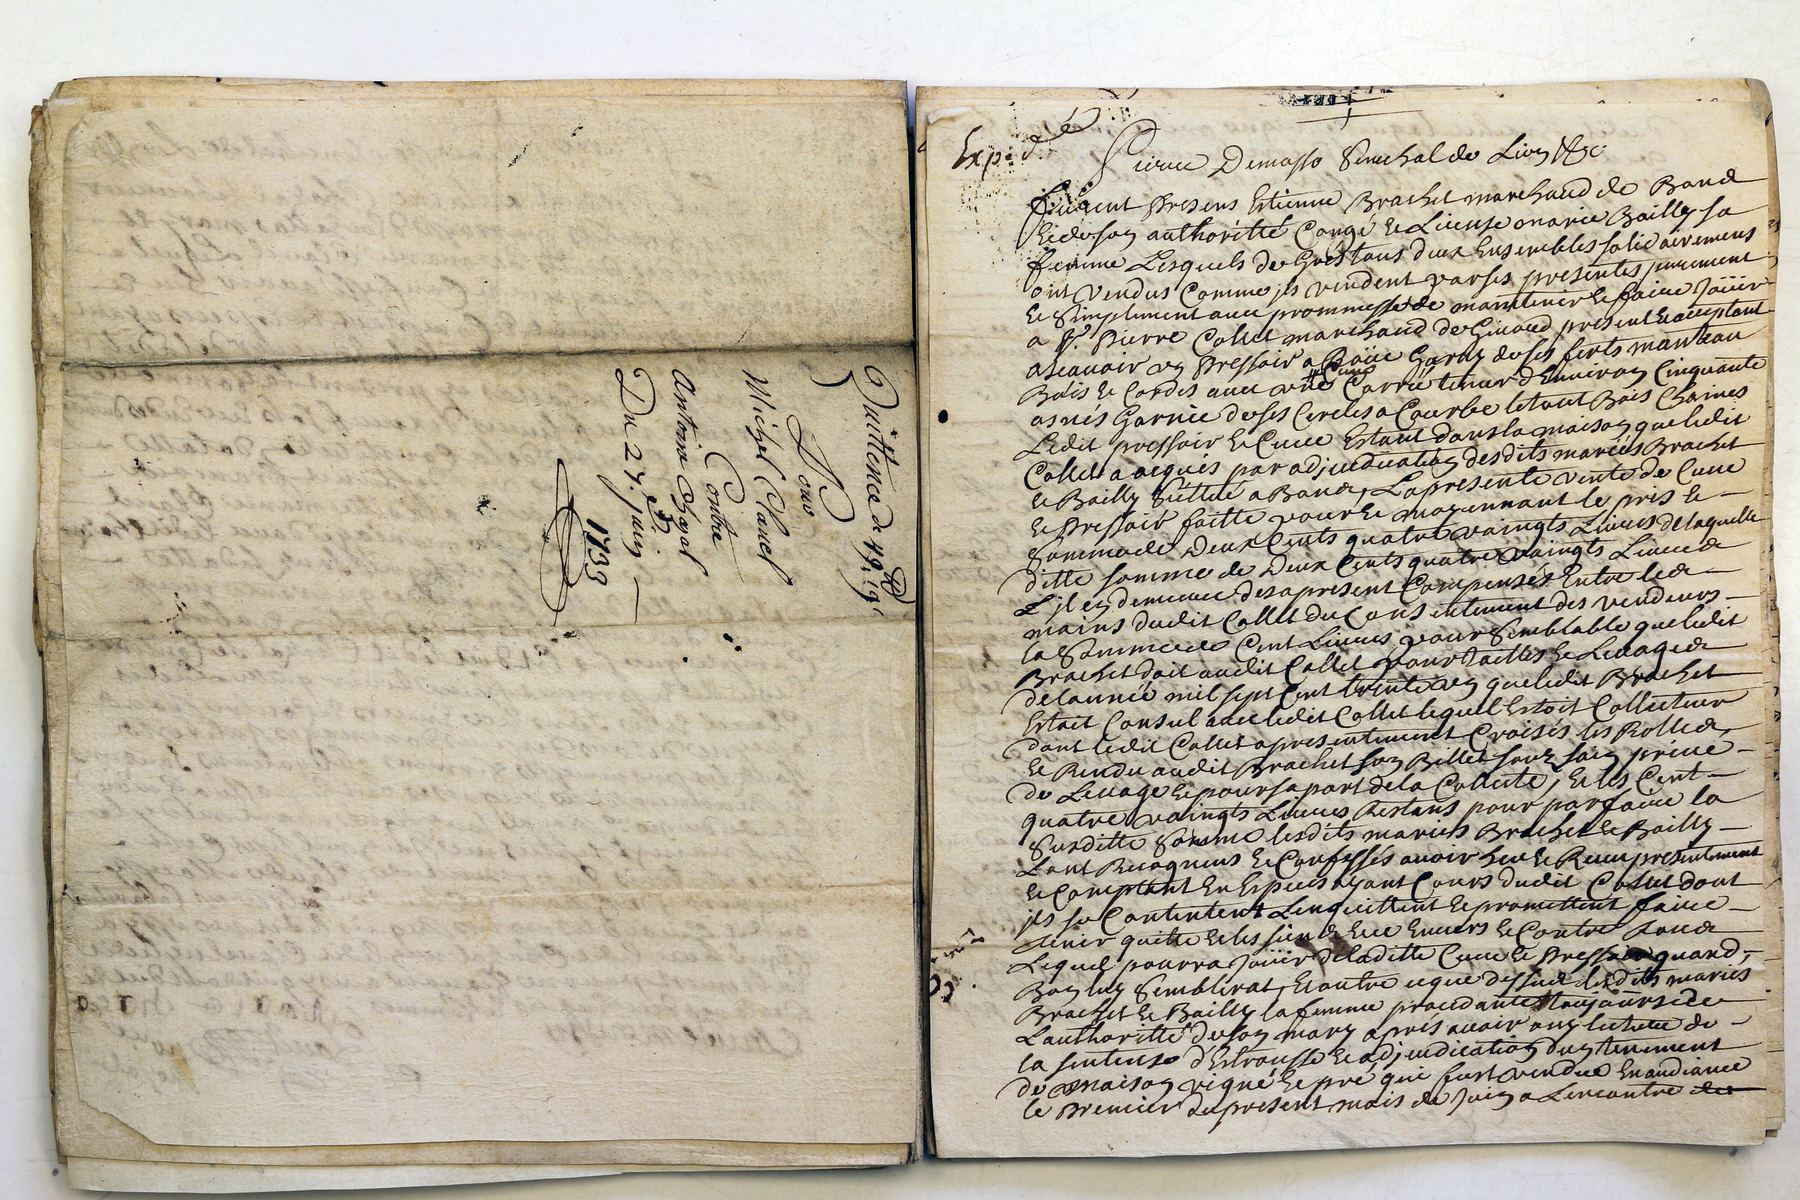 Quittence de 49.lt 19s
Pour
Michel Clauel
Contre
Antoine Chapal
Du 27.e Juin
1733
Expéd.
Pierre Demasso Senechal de Lion &c
furent presens Estienne Brachet marchand de Band
& de son authoritté Congé & License marie Bailly sa
femme Lesquels de Gré & tous deux Ensembles solidairemens
ont vendus Comme jls vendent par ses presentes purement
& Simplement auec prommesse de maintenir & faire Joüir
a Sr. Pierre Collet marchand de Giraud present & acceptant
ascauoir un Pressoir a Roüe Garny de ses forts manteau
Bois & Cordes auec une Cuue Carrée tenur d'Enuiron Cinquante
asnés Garnie de ses Cercles a Courbe le tout Bois Chaines
Ledit pressoir & Cuue Estant dans la maison que ledit
Collet a acquis par adjudication desdits mariés Brachet
& Bailly Scittué a Band, La presente vente de Cuue
& Pressoir faitte pour & moyennant le pris &
Somme de Deux Cents quatre vaingts Liures de laquelle
ditte somme de Deux Cents quatre vaingts Liures
Il en demeure des a present Compensés Entre les
mains dudit Collet du Consentement des vendeurs
la Somme de Cent Liures pour Semblable que ledit
Brachet doit audit Collet pour Tailles & Leuage
de lannée mil sept Cent trente un que ledit Brachet
Estoit Consul auec ledit Collet lequel Estoit Collecteur
dont ledit Collet a presentement Croisés les Rolles
& Rendu audit Brachet son Billet souz sain priué
de Leuage & pour sa part de la Collecte, & les Cent
quatre vaingts Liures Restans pour parfaire la
Susditte Somme lesdits mariés Brachet & Bailly
Lont Recognus & Confessés auoir heu & Receu presentement
& Comptant En Espèces ayant Cours dudit Collet dont
jls se Contentent Lenquittent & promettent faire
tenir quitte & les siens Enuers & Contre Tous
Lequel pourra Joüir de laditte Cuue & Pressoir quand
Bon luy Semblerat, & outre ce que dessus lesdits mariés
Brachet & Bailly la femme procedante toujours de
Lauthoritté de son mary apres auoir ouy lecture de
la sentense d'Estrousse & adjudication du tenement
de maison vigne & pré qui fust vendue En audiance
le Premier du present mois de Juin a Lencontre